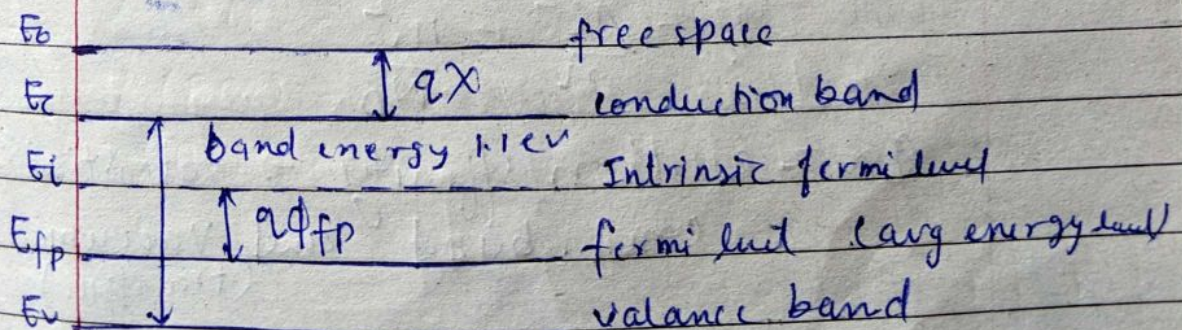 E0 free space
qX
Ec conduction band
band energy 1.1ev
Ei Intrinsic fermi level
qΦfp
Efp fermi level (avg energy level)
Ev valance band